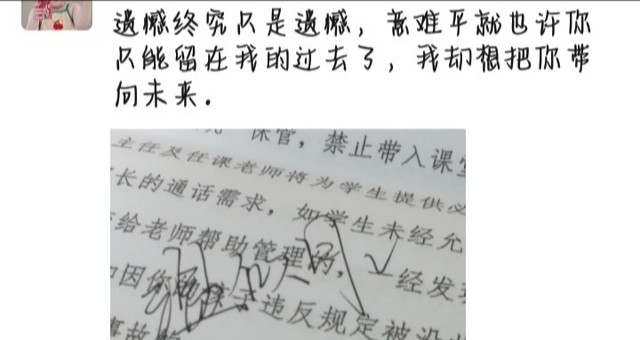 遗憾终究只是遗憾，意难平就也许你
只能留在我的过去了，我却想把你带
向未来.
保管，禁止带入课堂
主任及任课老师将为学生提供必
长的通话需求，如学生未经允
给老师帮助管理的，一经发现
因
违反规定被没收
事故